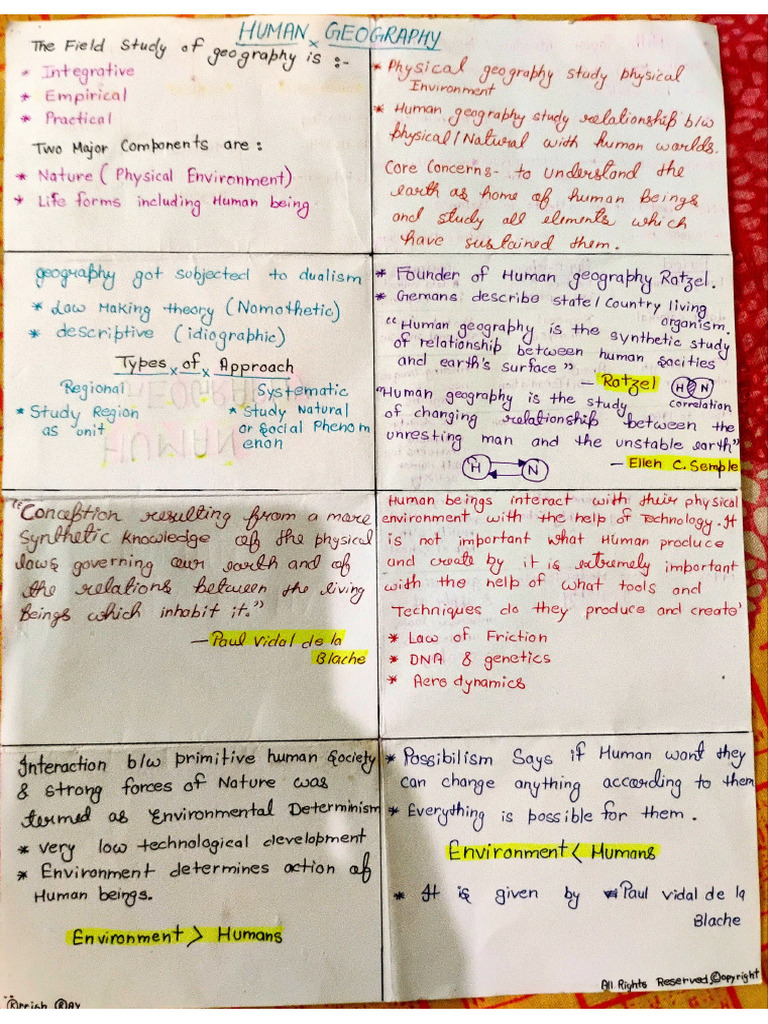 HUMAN GEOGRAPHY
The Field Study of geography is :-
* Integrative
* Empirical
* Practical
Two Major Components are :
* Nature ( Physical Environment)
* Life forms including Human being
* Physical geography study physical
Environment
* Human geography study relationship b/w
physical/Natural with human worlds.
Core Concerns- to understand the
earth as home of human Beings
and study all elements which
have sustained them.
geography got subjected to dualism
* Law Making theory (Nomothetic)
* descriptive (idiographic)
Types of Approach
Regional
* Study Region
as unit
Systematic
* Study Natural
or Social Phenom
enon
* Founder of Human geography Ratzel.
* Gemans describe state/Country living
organism.
"Human geography is the synthetic study
of relationship between human socities
and earth's surface"
- Ratzel
H N
correlation
"Human geography is the study
of changing relationship between the
unresting man and the unstable earth"
- Ellen C. Semple
H N
"Conception resulting from a more
Synthetic knowledge of the physical
laws governing our earth and of
the relations between the living
Beings which inhabit it."
- Paul Vidal de la
Blache
Human beings interact with their physical
environment with the help of Technology. It
is not important what Human produce
and create by it is extremely important
with the help of what tools and
Techniques do they produce and create'
* Law of Friction
* DNA & genetics
* Aero dynamics
Interaction b/w primitive human Society
& strong forces of Nature was
termed as Environmental Determinism
* very low technological development
* Environment determines action of
Human beings.
Environment > Humans
* Possibilism Says if Human want they
can change anything according to them
* Everything is possible for them.
Environment < Humans
* It is given by Paul Vidal de la
Blache
All Rights Reserved, ©opyright